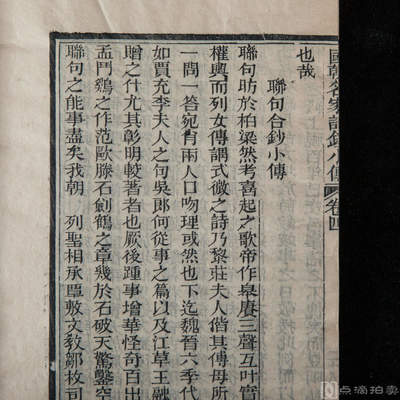 國朝名家詩鈔小傳 卷四
也哉
聯句合鈔小傳
聯句昉於柏梁然考喜起之歌帝作皋賡三聲互叶實
權輿而列女傳謂式微之詩乃黎莊夫人偕其傅母所
一問一答宛有兩人口吻理或然也下迄魏晉六季代
如賈充李夫人之句吳郎何從事之篇以及江草王融
贈之什尤其彰明較著者也厥後踵事增華怪奇百出
孟鬥鷄之作范歐滕石劍鶴之章幾於石破天驚鑿空
聯句之能事盡矣我朝 列聖相承覃敷文教鄒枚司
点滴拍卖